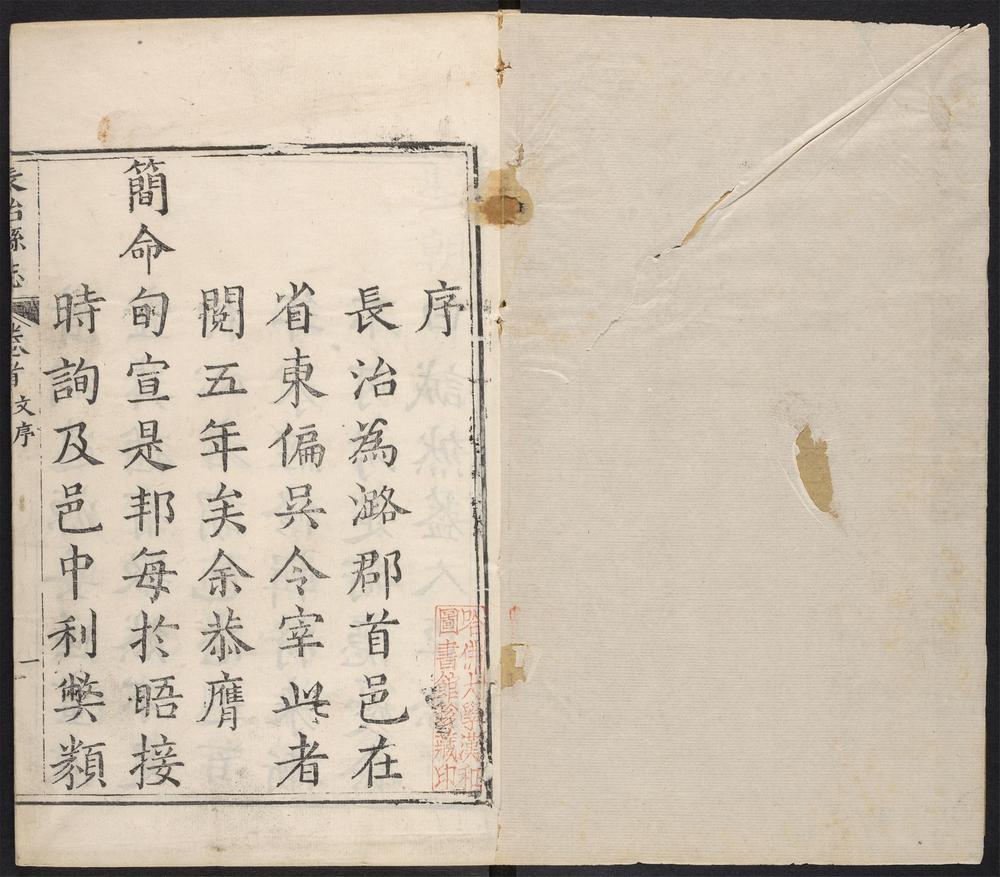 序
長治為潞郡首邑在
省東偏吳令宰此者
閱五年矣余恭膺
簡命旬宣是邦每於晤接
時詢及邑中利獘類
長治縣志
卷首
文序
一
哈佛大學漢和
圖書館珍藏印